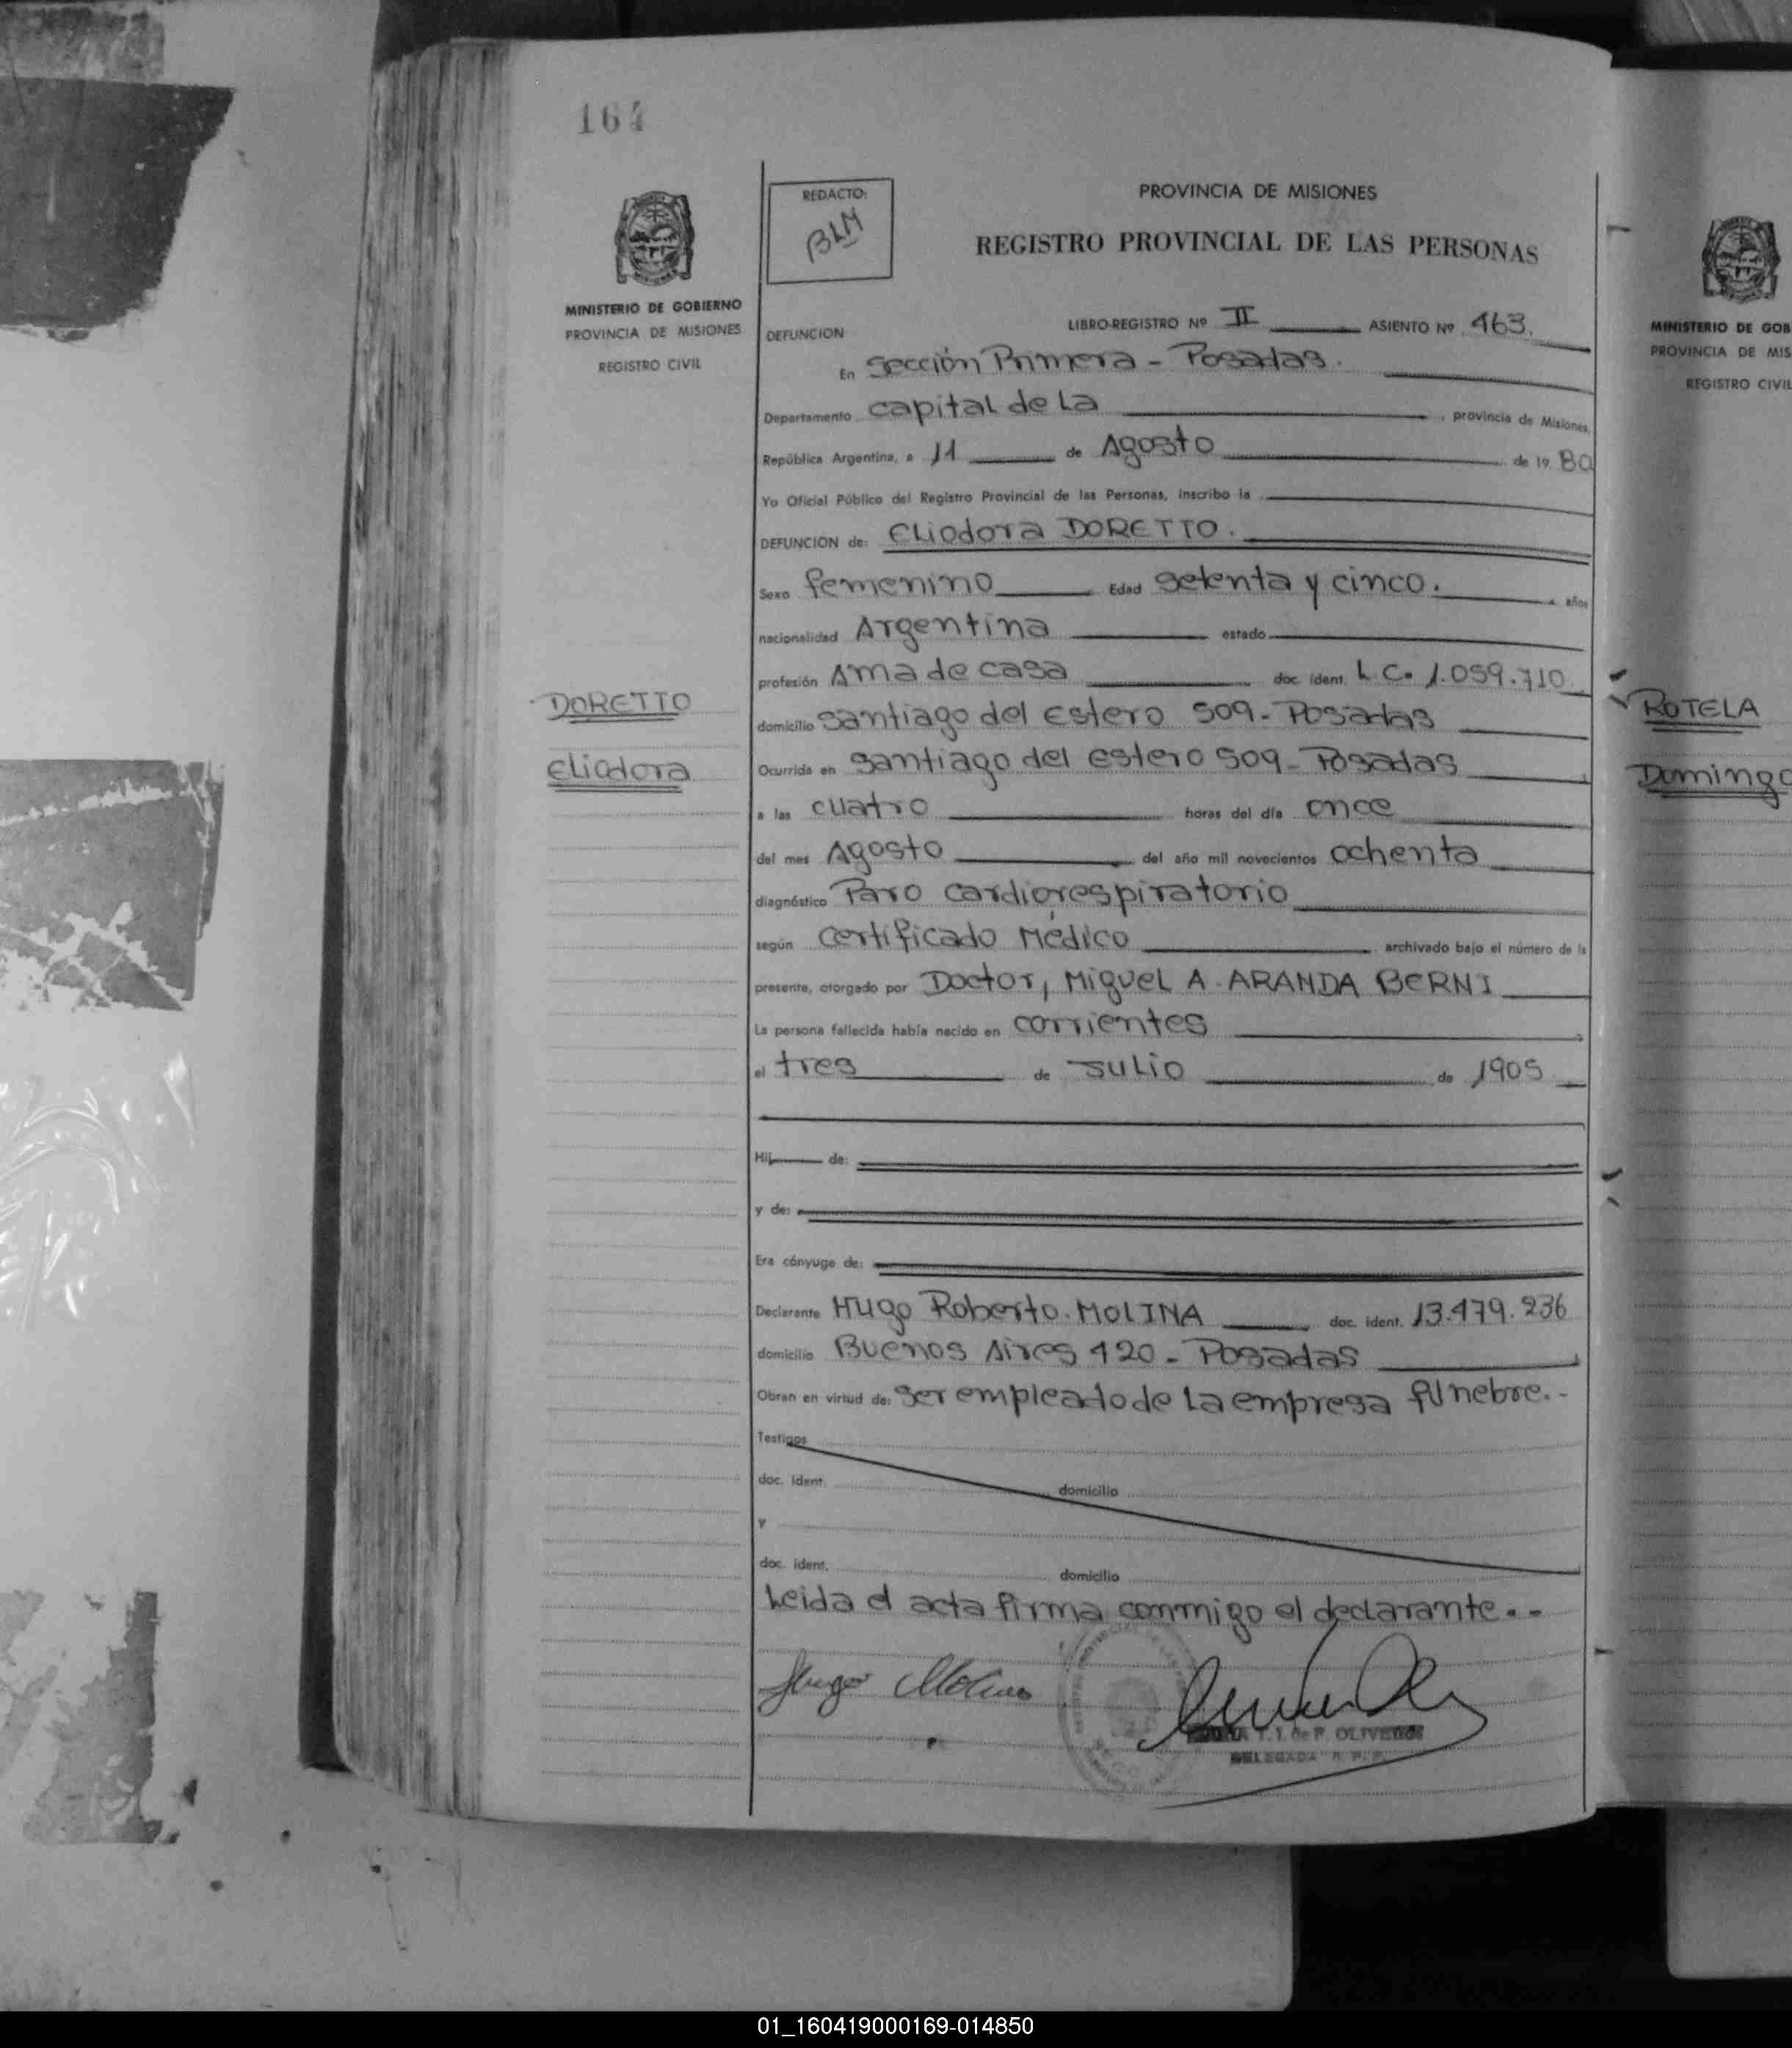 164
MINISTERIO DE GOBIERNO
PROVINCIA DE MISIONES
REGISTRO CIVIL
DORETTO
Eliodora
REDACTO:
BLM
PROVINCIA DE MISIONES
REGISTRO PROVINCIAL DE LAS PERSONAS
DEFUNCION LIBRO-REGISTRO Nº II ASIENTO Nº 463.
En Sección Primera - Posadas.
Departamento Capital de La provincia de Misiones,
República Argentina, a 11 de Agosto de 19 80
Yo Oficial Público del Registro Provincial de las Personas, inscribo la
DEFUNCION de: Eliodora DORETTO.
Sexo femenino Edad setenta y cinco. años
nacionalidad Argentina estado
profesión Ama de casa doc. ident. L.C. 1.059.710
domicilio Santiago del Estero 509 - Posadas
Ocurrida en Santiago del Estero 509 - Posadas
a las cuatro horas del día once
del mes Agosto del año mil novecientos ochenta
diagnóstico Paro cardiorespiratorio
según certificado Médico archivado bajo el número de la
presente, otorgado por Doctor, Miguel A. ARANDA BERNI
La persona fallecida había nacido en Corrientes
el tres de Julio de 1905
Hij de:
y de:
Era cónyuge de:
Declarante Hugo Roberto MOLINA doc. ident. 13.479.236
domicilio Buenos Aires 420 - Posadas
Obran en virtud de: ser empleado de la empresa fúnebre.-
Testigos
doc. ident. domicilio
y
doc. ident. domicilio
Leida el acta firma conmigo el declarante.-
Hugo Molina
OLIVEROS
DELEGADA R. P. P.
MINISTERIO DE GOB
PROVINCIA DE MIS
REGISTRO CIVIL
ROTELA
Domingo
01_160419000169-014850